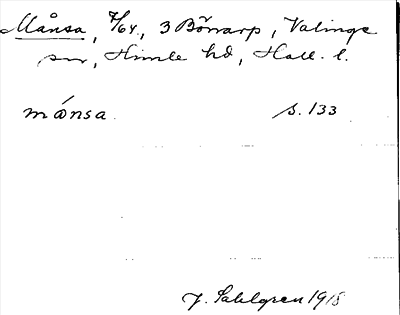 Månsa, 7/64, 3 Börrarp, Valinge
sn, Himle hd, Hall. l.
månsa. s. 133
J. Sahlgren 1918